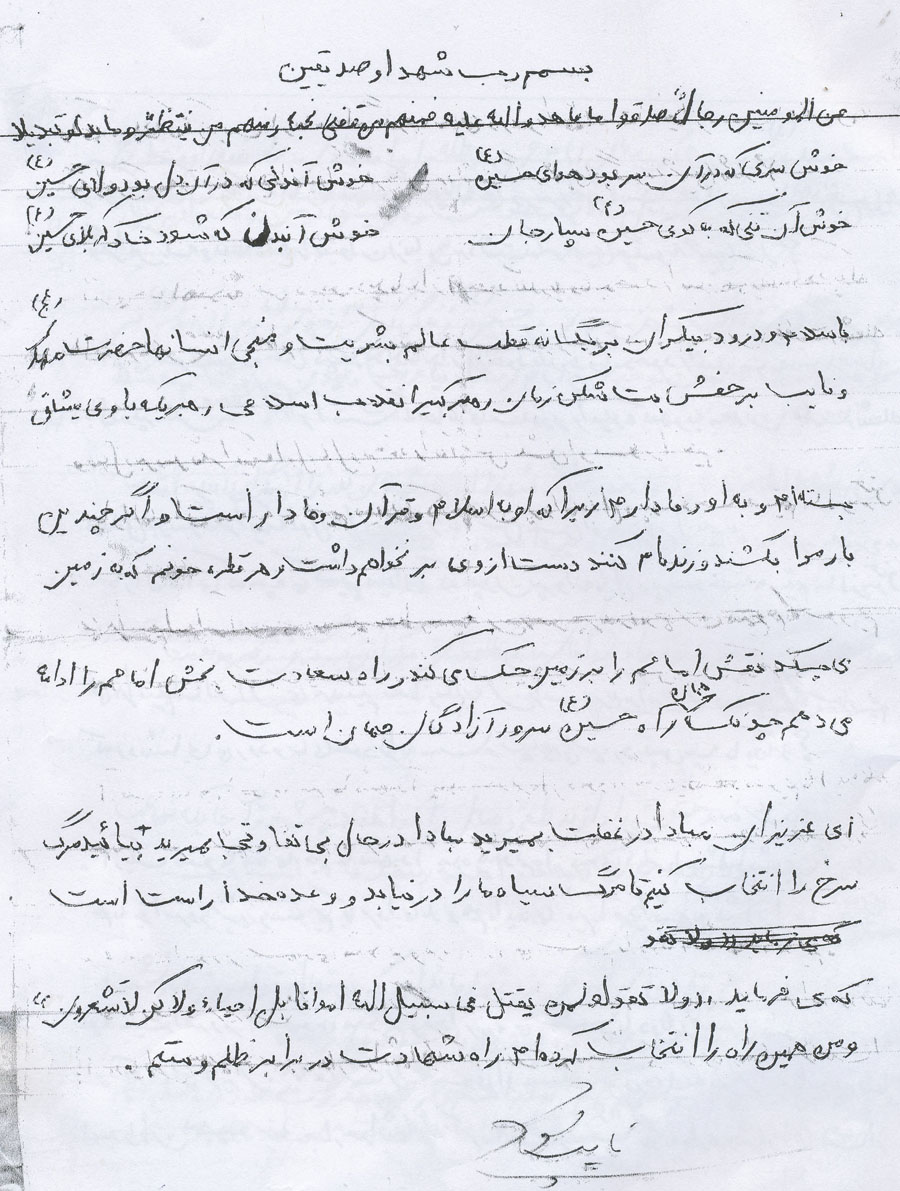 بسم رب شهدا و صدیقین
من المومنین رجال صدقوا ما عاهدو الله علیه فمنهم من قضی نحبه و منهم من ینتظر و ما بدلو تبدیلا
خوش سری که در آن سر بود هدای حسین (ع) خوش آندلی که در آن دل بود ولای حسین (ع)
خوش آن تنی که به کوی حسین (ع) سپارد جان خوش آنبدن که شود خاک کربلای حسین (ع)
با سلام و درود بیکران بر یگانه قطب عالم بشریت و منجی انسانها حضرت مهدی (عج)
و نایب بر حقش بت شکن زمان رهبر کبیر انقلاب اسلامی رهبریکه با وی میثاق
بسته‌ام و به او وفادارم زیرا که او به اسلام و قرآن وفادار است و اگر چندین
بار مرا بکشند و زنده‌ام کنند دست از وی بر نخواهم داشت و هر قطره خونم که به زمین
می‌چکد نقش امامم را بر زمین حک می کند و راه سعادت بخش امامم را ادامه
می دهم چونکه راه همان راه حسین (ع) سرور آزادگان جهان است.
ای عزیزان مبادا در غفلت بمیرید مبادا در حال بی تفاوتی بمیرید بیائید مرگ
سرخ را انتخاب کنیم تا مرگ سیاه ما را در نیابد و وعده خدا راست است
که می فرماید «ولا تقو
که می فرماید «ولا تقولو لمن یقتل فی سبیل الله امواتا بل احیاء ولاکن لا تشعرون»
و من همین راه را انتخاب کرده‌ام راه شهادت در برابر ظلم و ستم.